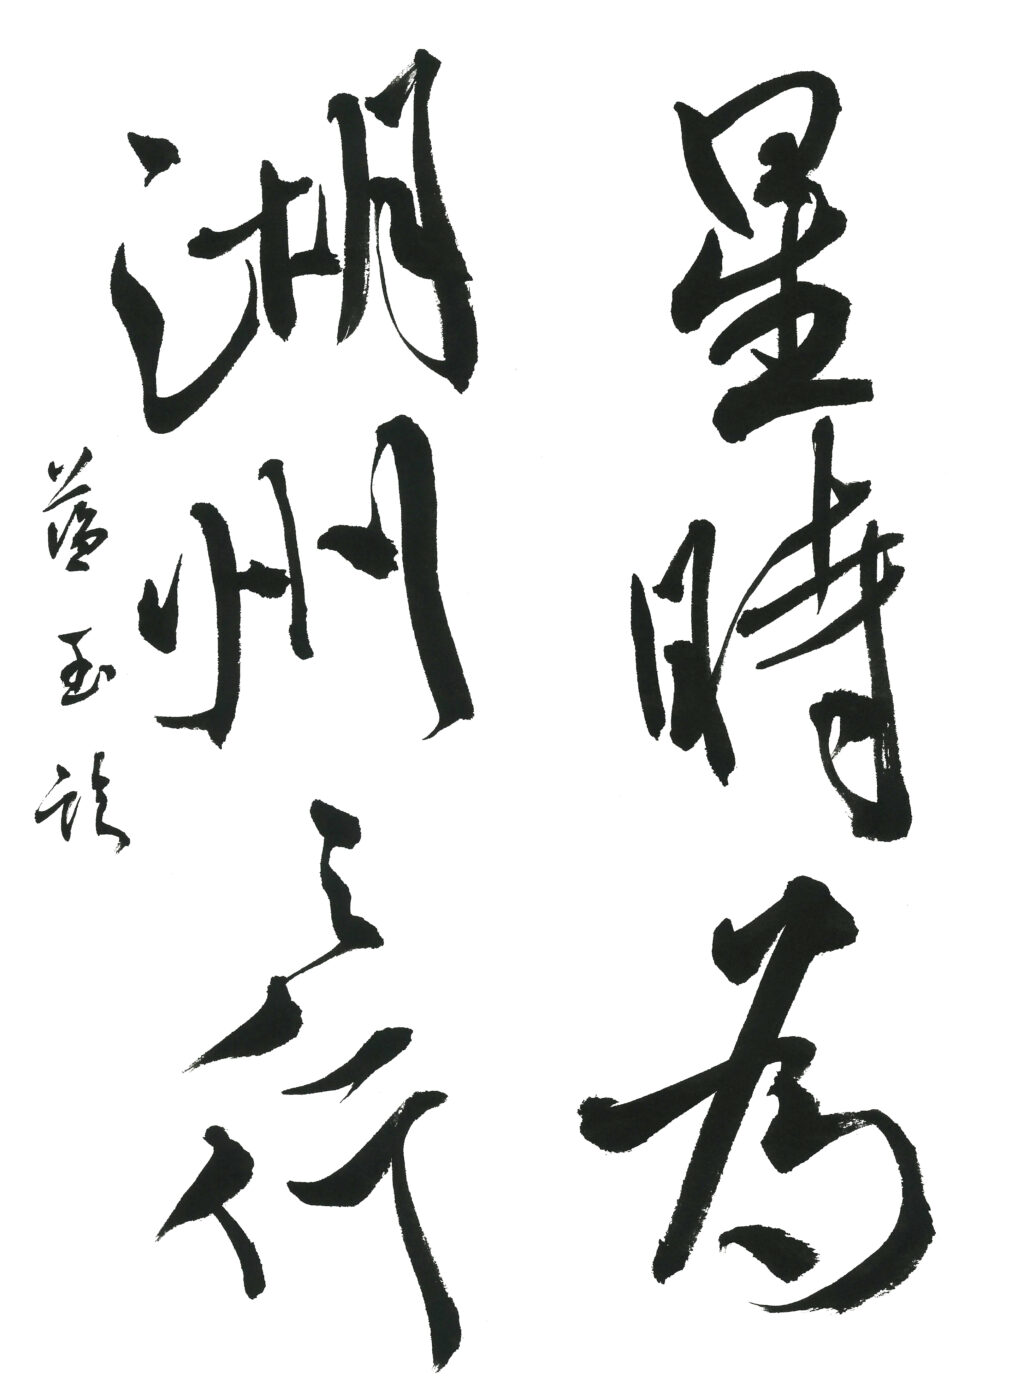 星時為
湖州之行
藍玉詠